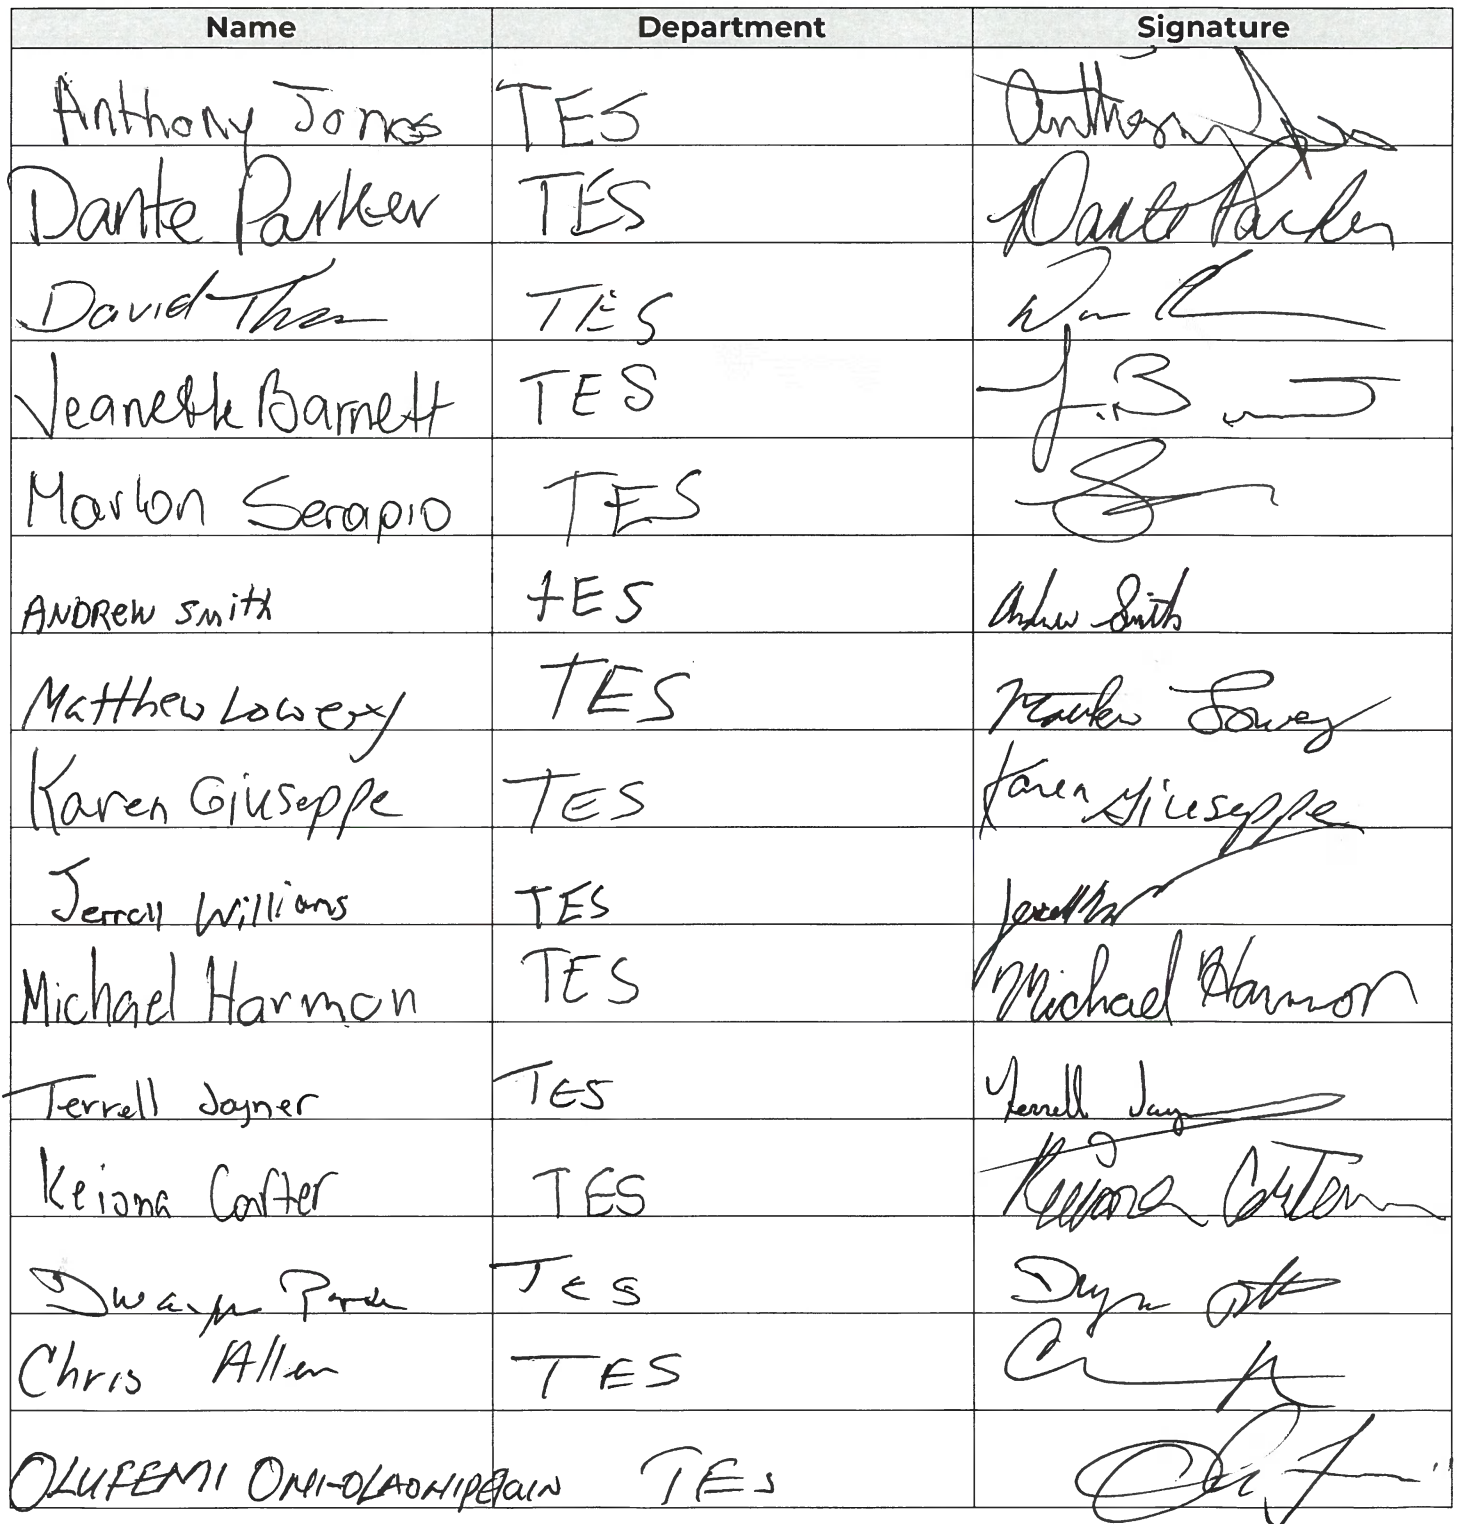 Name Department Signature
Anthony Jones TES Anthony Jones
Dante Parker TES Dante Parker
David TES
Jeanette Barnett TES J. B
Marlon Serapio TES
ANDREW Smith tES Andrew Smith
Matthew Lowery TES Matthew Lowery
Karen Giuseppe TES Karen Giuseppe
Jerrell Williams TES Jerrell W
Michael Harmon TES Michael Harmon
Terrell Joyner TES Terrell Joyner
Keiona Carter TES Keiona Carter
Dwayne TES
Chris Allen TES
OLUFEMI TES